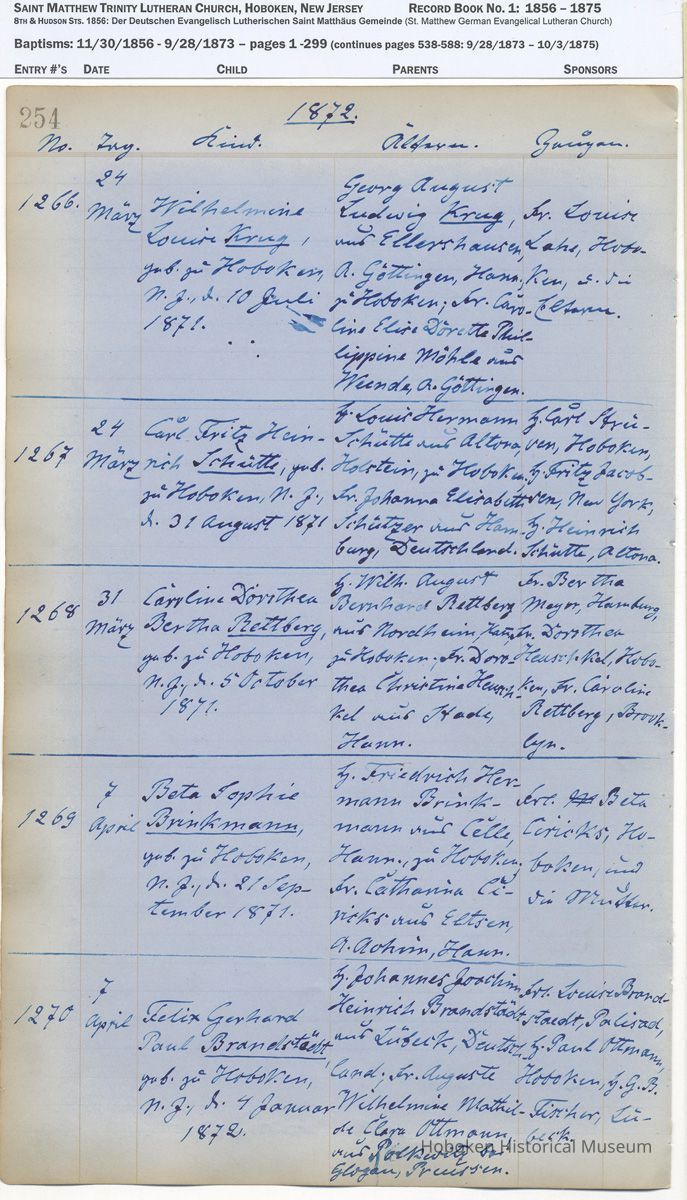 SAINT MATTHEW TRINITY LUTHERAN CHURCH, HOBOKEN, NEW JERSEY RECORD BOOK NO. 1: 1856 – 1875
8TH & HUDSON STS. 1856: Der Deutschen Evangelisch Lutherischen Saint Matthäus Gemeinde (St. Matthew German Evangelical Lutheran Church)
Baptisms: 11/30/1856 - 9/28/1873 – pages 1 -299 (continues pages 538-588: 9/28/1873 – 10/3/1875)
ENTRY #'S DATE CHILD PARENTS SPONSORS
254
1872.
No. Tag. Kind. Ältern. Zeugen.
1266.
24
März
Wilhelmine
Louise Krug,
geb. zu Hoboken,
N. J., d. 10 Juli
1871.
Georg August
Ludwig Krug,
aus Ellershausen,
A. Göttingen, Hann.
zu Hoboken; Fr. Caro-
line Elise Dorette Phi-
lippine Möhle aus
Weende, A. Göttingen.
Fr. Louise
Lahs, Hobo-
ken, u. die
Eltern.
1267
24
März
Carl Fritz Hein-
rich Schütte, geb.
zu Hoboken, N. J.,
d. 31 August 1871
H. Louis Hermann
Schütte aus Altona,
Holstein, zu Hoboken,
Fr. Johanna Elisabeth
Schützer aus Ham-
burg, Deutschland.
H. Carl Strü-
ven, Hoboken,
H. Fritz Jacob-
sen, New York,
H. Heinrich
Schütte, Altona.
1268
31
März
Caroline Dorothea
Bertha Rettberg,
geb. zu Hoboken,
N. J., d. 5 October
1871.
H. Wilh. August
Bernhard Rettberg
aus Nordheim, Hann.
zu Hoboken; Fr. Doro-
thea Christine Heusch-
kel aus Stade,
Hann.
Fr. Bertha
Meyer, Hamburg,
Fr. Dorothea
Heuschkel, Hobo-
ken, Fr. Caroline
Rettberg, Brook-
lyn.
1269
7
April
Beta Sophie
Brinkmann,
geb. zu Hoboken,
N. J., d. 21 Sep-
tember 1871.
H. Friedrich Her-
mann Brink-
mann aus Celle,
Hann., zu Hoboken;
Fr. Catharina Ci-
ricks aus Eltsen,
A. Achim, Hann.
Frl. Beta
Ciricks, Ho-
boken, und
die Mutter.
1270
7
April
Felix Gerhard
Paul Brandstädt,
geb. zu Hoboken,
N. J., d. 4 Januar
1872.
H. Johannes Joachim
Heinrich Brandstädt
aus Lübeck, Deutsch-
land; Fr. Auguste
Wilhelmine Mathil-
de Clara Ottmann
aus
Glogau, Preussen.
Frl. Louise Brand-
staedt, Palisad,
H. Paul Ottmann,
Hoboken, H. G. B.
Fischer, Lü-
beck.
Hoboken Historical Museum